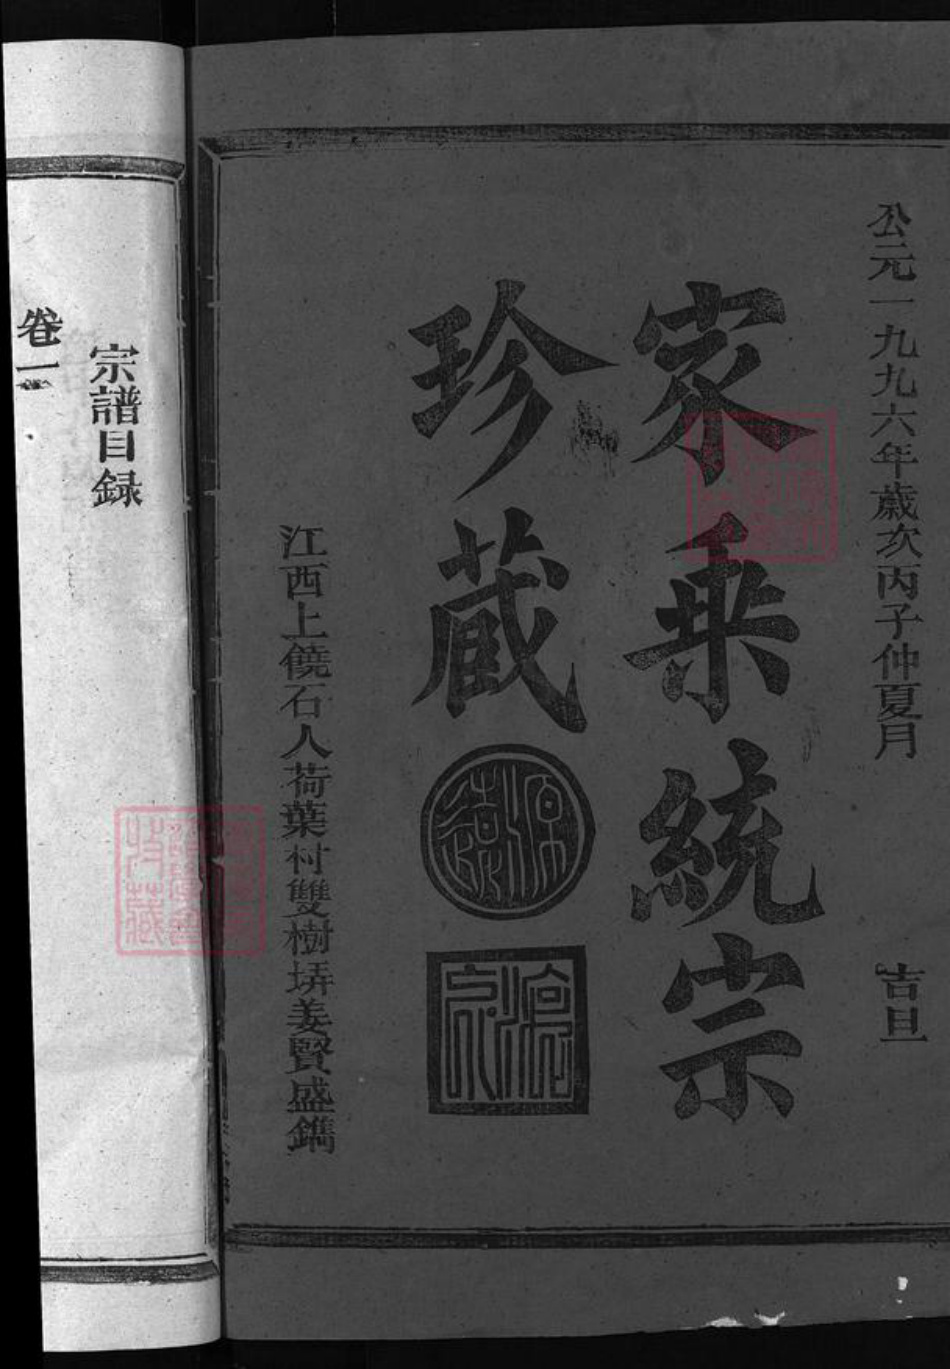 公元一九九六年歲次丙子仲夏月　吉旦
家乘統宗
珍藏
源遠
江西上饒石人荷葉村雙樹塝姜賢盛鐫
宗譜目録
卷一
收藏